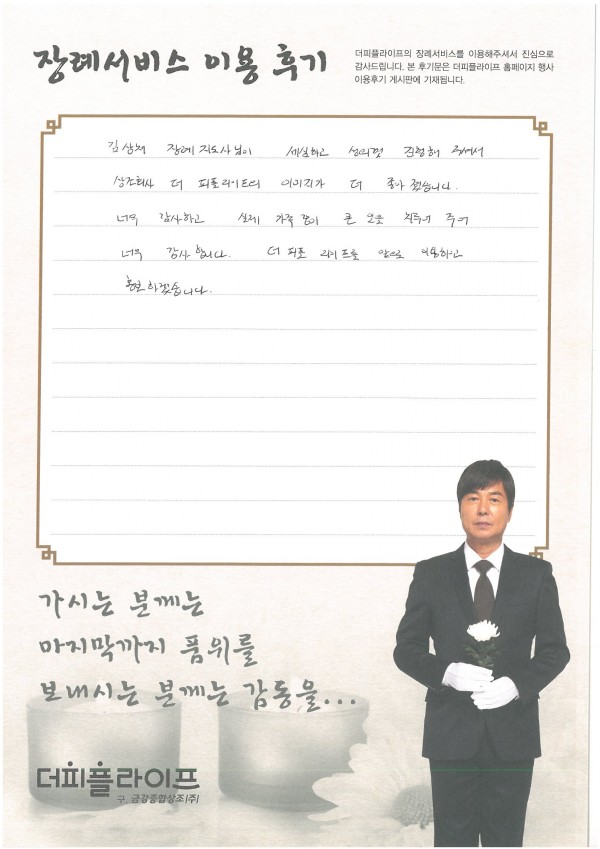 장례서비스 이용 후기
더피플라이프의 장례서비스를 이용해주셔서 진심으로
감사드립니다. 본 후기문은 더피플라이프 홈페이지 행사
이용후기 게시판에 기재됩니다.
김상채 장례 지도사님이 세심하고 성의껏 진행해 주셔서
상조회사 더 피플라이프의 이미지가 더 좋아 졌습니다.
너무 감사하고 실제 가족 같이 큰 도움 주어
너무 감사 합니다. 더 피플 라이프를 앞으로 이용하고
홍보 하겠습니다.
가시는 분께는
마지막까지 품위를
보내시는 분께는 감동을...
더피플라이프
구. 금강종합상조(주)